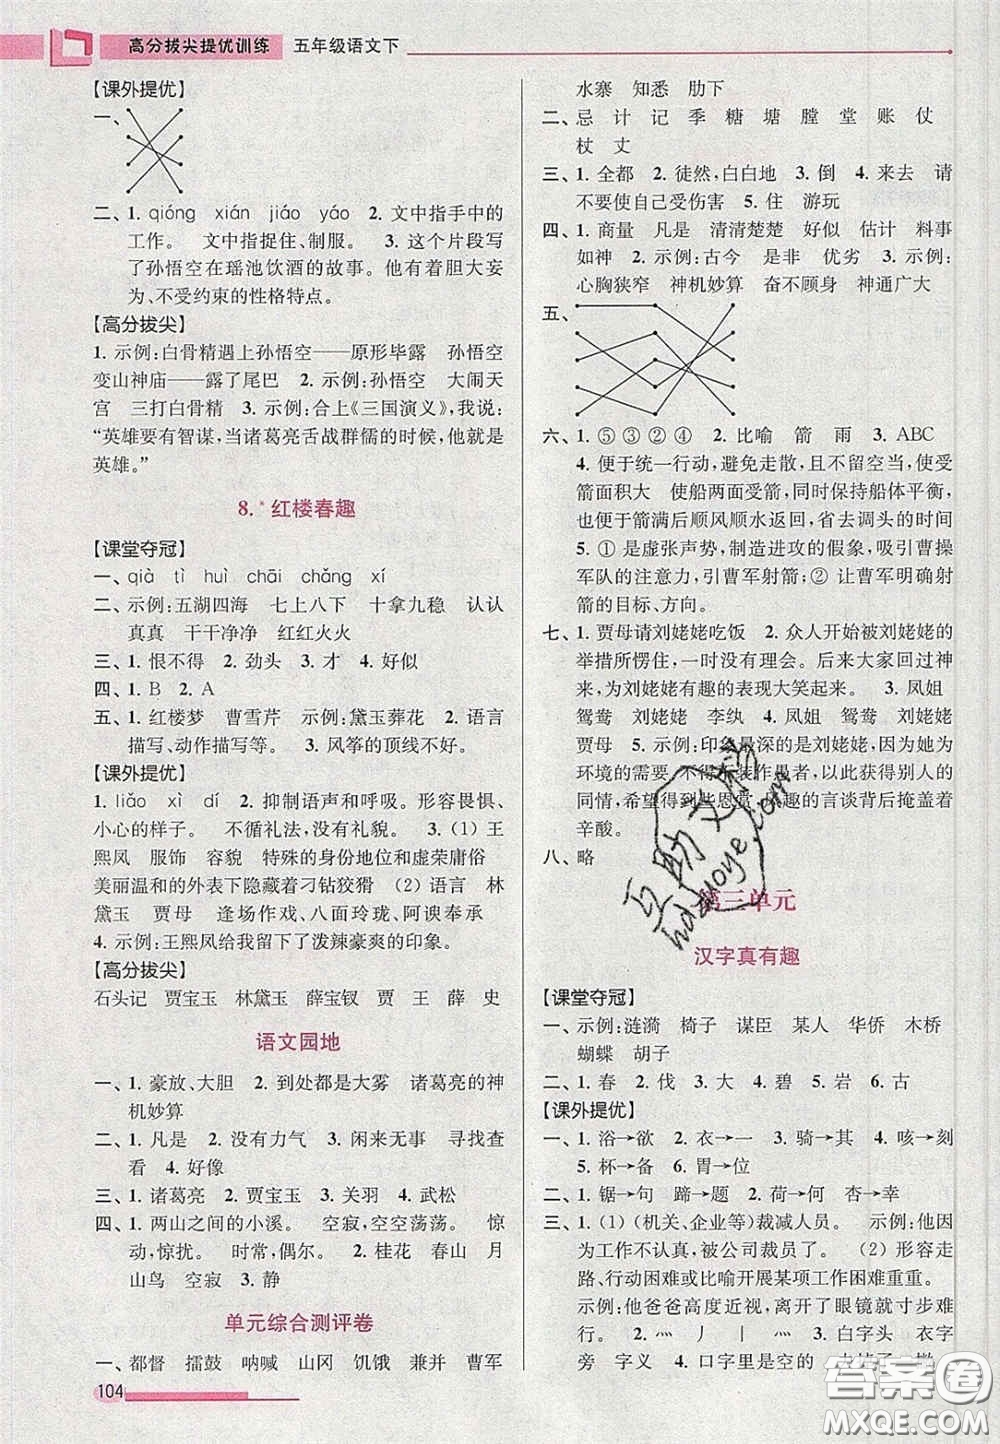 高分拔尖提优训练 五年级语文下
【课外提优】
一、
二、1. qióng xián jiáo yáo 2. 文中指手中的
工作。 文中指捉住、制服。 3. 这个片段写
了孙悟空在瑶池饮酒的故事。他有着胆大妄
为、不受约束的性格特点。
【高分拔尖】
1. 示例:白骨精遇上孙悟空——原形毕露 孙悟空
变山神庙——露了尾巴 2. 示例:孙悟空 大闹天
宫 三打白骨精 3. 示例:合上《三国演义》,我说:
“英雄要有智谋,当诸葛亮舌战群儒的时候,他就是
英雄。”
8.* 红楼春趣
【课堂夺冠】
一、qià tì huì chāi chǎng xí
二、示例:五湖四海 七上八下 十拿九稳 认认
真真 干干净净 红红火火
三、1. 恨不得 2. 劲头 3. 才 4. 好似
四、1. B 2. A
五、1. 红楼梦 曹雪芹 示例:黛玉葬花 2. 语言
描写、动作描写等。 3. 风筝的顶线不好。
【课外提优】
1. liǎo xì dí 2. 抑制语声和呼吸。形容畏惧、
小心的样子。 不循礼法,没有礼貌。 3. (1) 王
熙凤 服饰 容貌 特殊的身份地位和虚荣庸俗
美丽温和的外表下隐藏着刁钻狡猾 (2) 语言 林
黛玉 贾母 逢场作戏、八面玲珑、阿谀奉承
4. 示例:王熙凤给我留下了泼辣豪爽的印象。
【高分拔尖】
石头记 贾宝玉 林黛玉 薛宝钗 贾 王 薛 史
语文园地
一、1. 豪放、大胆 2. 到处都是大雾 诸葛亮的神
机妙算
二、1. 凡是 2. 没有力气 3. 闲来无事 寻找查
看 4. 好像
三、1. 诸葛亮 2. 贾宝玉 3. 关羽 4. 武松
四、1. 两山之间的小溪。 空寂,空空荡荡。 惊
动,惊扰。 时常,偶尔。 2. 桂花 春山 月
山鸟 空寂 3. 静
单元综合测评卷
一、都督 擂鼓 呐喊 山冈 饥饿 兼并 曹军
104
水寨 知悉 肋下
二、忌 计 记 季 糖 塘 膛 堂 账 仗
杖 丈
三、1. 全都 2. 徒然,白白地 3. 倒 4. 来去 请
不要因此而使自己受伤害 5. 住 游玩
四、1. 商量 凡是 清清楚楚 好似 估计 料事
如神 2. 示例:古今 是非 优劣 3. 示例:
心胸狭窄 神机妙算 奋不顾身 神通广大
五、
六、1. ⑤③②④ 2. 比喻 箭 雨 3. ABC
4. 便于统一行动,避免走散,且不留空当,使受
箭面积大 使船两面受箭,同时保持船体平衡,
也便于箭满后顺风顺水返回,省去调头的时间
5. ① 是虚张声势,制造进攻的假象,吸引曹操
军队的注意力,引曹军射箭;② 让曹军明确射
箭的目标、方向。
七、1. 贾母请刘姥姥吃饭 2. 众人开始被刘姥姥的
举措所愣住,一时没有理会。后来大家回过神
来,为刘姥姥有趣的表现大笑起来。 3. 凤姐
鸳鸯 刘姥姥 李纨 4. 凤姐 鸳鸯 刘姥姥
贾母 5. 示例:印象最深的是刘姥姥,因为她为
环境的需要,不得不装作愚者,以此来获得别人的
同情,希望得到些恩赏,风趣的言谈背后掩盖着
辛酸。
八、略
第三单元
汉字真有趣
【课堂夺冠】
一、示例:涟漪 椅子 谋臣 某人 华侨 木桥
蝴蝶 胡子
二、1. 春 2. 伐 3. 大 4. 碧 5. 岩 6. 古
【课外提优】
一、1. 浴→欲 2. 衣→一 3. 骑→其 4. 咳→刻
5. 杯→备 6. 胃→位
二、1. 锯→句 蹄→题 2. 荷→何 杏→幸
三、1. (1) (机关、企业等)裁减人员。 示例:他因
为工作不认真,被公司裁员了。 (2) 形容走
路、行动困难或比喻开展某项工作困难重重。
示例:他爸爸高度近视,离开了眼镜就寸步难
行。 2. 灬 丿 丨 一 3. 白字头 衣字
旁 字义 4. 口字里是空的
互助文档
hdzuoye.com
答案圈
MXQE.COM